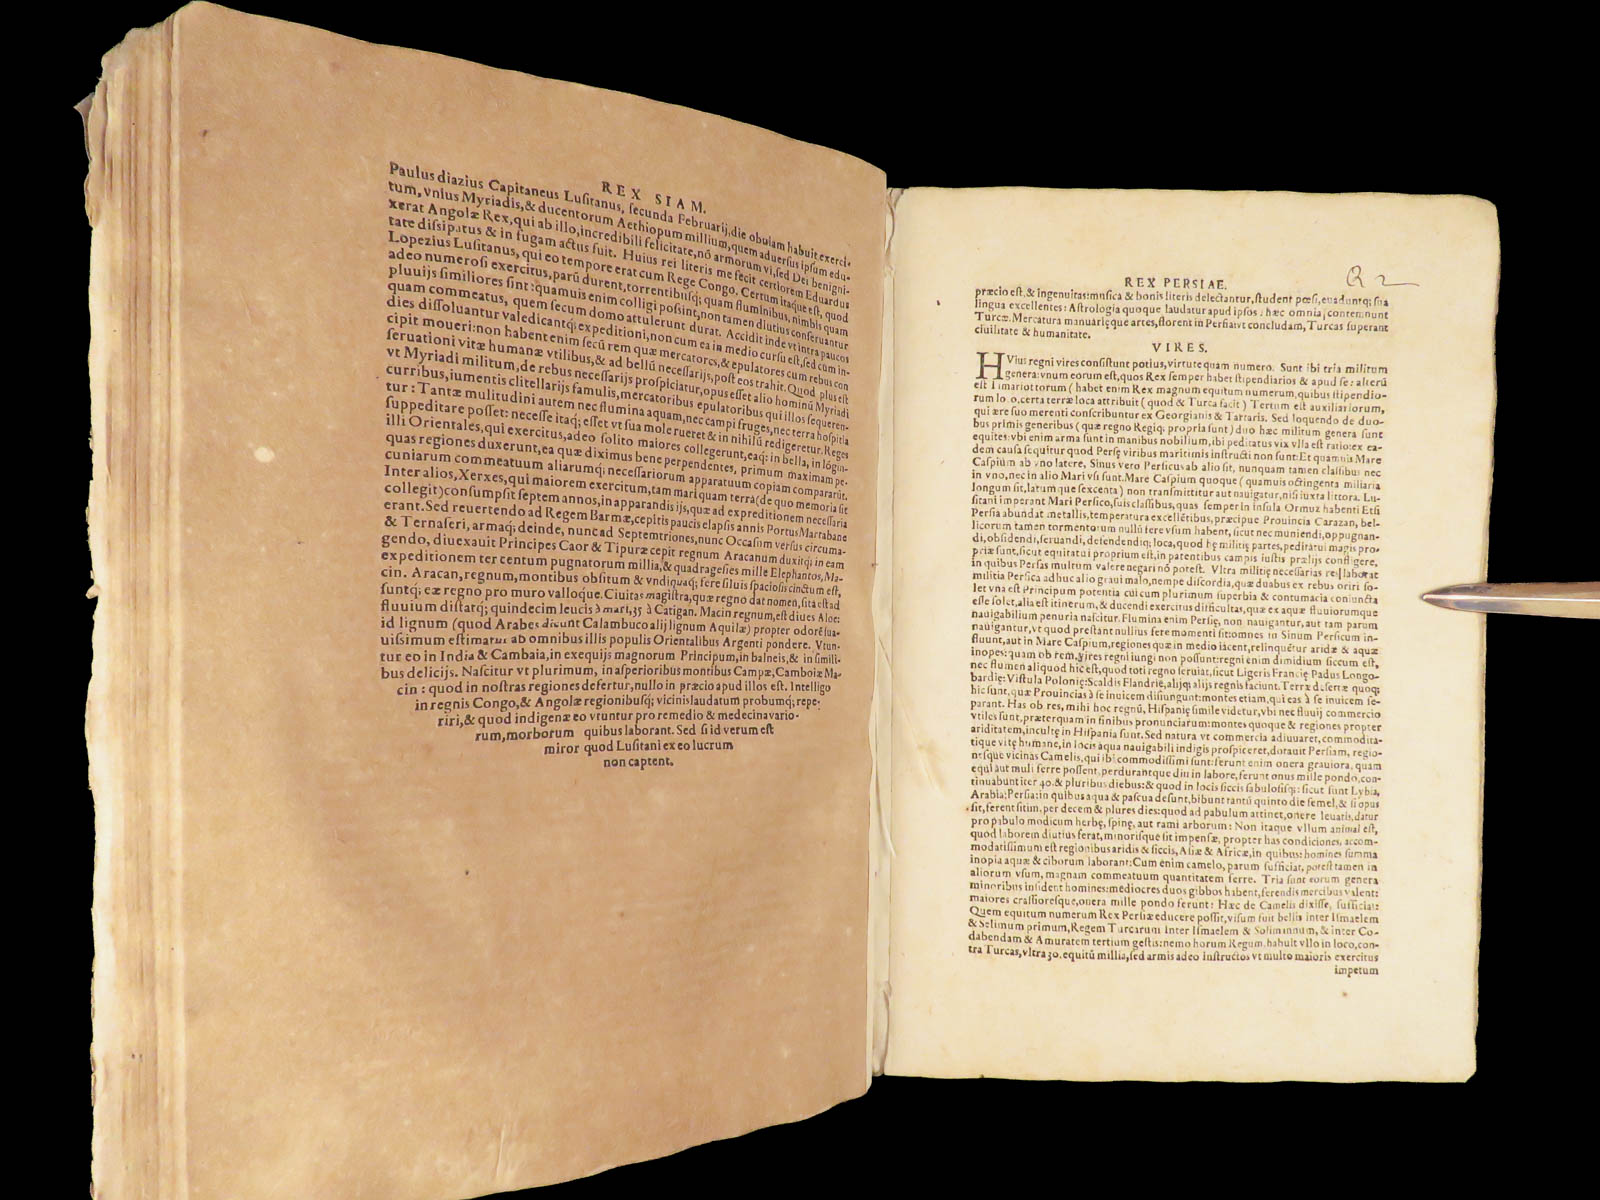 REX SIAM.
Paulus diazius Capitaneus Luſitanus, ſecunda Februarij, die obuiam habuit exerci-
tum, vnius Myriadis, & ducentorum Aethiopum millium, quem aduerſus ipſum edu-
xerat Angolæ Rex, qui ab illo, incredibili felicitate, nō armorum vi, ſed Dei benigni-
tate diſſipatus & in fugam actus fuit. Huius rei literis me fecit certiorem Eduardus
Lopezius Luſitanus, qui eo tempore erat cum Rege Congo. Certum itaque eſt, quod
adeo numeroſi exercitus, parū durent, torrentibuſq; quam fluminibus, nimbis quam
pluuijs ſimiliores ſint: quamuis enim colligi poſsint, non tamen diutius conſeruantur
quam commeatus, quem ſecum domo attulerunt durat. Accidit inde vt intra paucos
dies diſſoluantur valedicantq; expeditioni, non cum ea in medio curſu eſt, ſed cum in-
cipit moueri: non habent enim ſecū rem quæ mercatores, & epulatores cum rebus con
ſeruationi vitæ humanæ vtilibus, & ad bellū neceſſarijs, poſt eos trahit. Quod plus eſt
vt Myriadi militum, de rebus neceſſarijs proſpiciatur, opus eſſet alio hominū Myriadi
curribus, iumentis clitellarijs famulis, mercatoribus epulatoribus qui illos ſequeren-
tur: Tantæ mulitudini autem nec flumina aquam, nec campi fruges, nec terra hoſpitia
ſuppeditare poſſet: neceſſe itaq; eſſet vt ſua mole rueret & in nihilū redigeretur. Reges
illi Orientales, qui exercitus, adeo ſolito maiores collegerunt, eaq; in bella, in lōgin-
quas regiones duxerunt, ea quæ diximus bene perpendentes, primum maximam pe-
cuniarum commeatuum aliarumq; neceſſariorum apparatuum copiam compararūt.
Inter alios, Xerxes, qui maiorem exercitum, tam mari quam terra (de quo memoria ſit
collegit) conſumpſit ſeptem annos, in apparandis ijs, quæ ad expreditionem neceſſaria
erant. Sed reuertendo ad Regem Barmæ, cepit is paucis elapſis annis Portus Martabane
& Ternaſeri, armaq; deinde, nunc ad Septemtriones, nunc Occaſum verſus circuma-
gendo, diu exauit Principes Caor & Tipuræ cepit regnum Aracanum duxitq; in eam
expeditionem ter centum pugnatorum millia, & quadragesies mille Elephantos, Ma-
cin. Aracan, regnum, montibus obſitum & vndiquaq; fere ſiluis ſpacioſis cinctum eſt,
ſuntq; eæ regno pro muro valloque. Ciuitas magiſtra, quæ regno dat nomen, ſita eſt ad
fluuium diſtatq; quindecim leucis à mari, 35 à Catigan. Macin regnum, eſt diues Aloe:
id lignum (quod Arabes dicunt Calambuco alij lignum Aquilæ) propter odorē ſua-
uiſsimum eſtimatur ab omnibus illis populis Orientalibus Argenti pondere. Vtun-
tur eo in India & Cambaia, in exequijs magnorum Principum, in balneis, & in ſimili-
bus delicijs. Naſcitur vt plurimum, in aſperioribus montibus Campæ, Camboiæ Ma-
cin: quod in noſtras regiones defertur, nullo in præcio apud illos eſt. Intelligo
in regnis Congo, & Angolæ regionibuſq; vicinis laudatum probumq; repe-
riri, & quod indigenæ eo vtuntur pro remedio & medecina vario-
rum, morborum quibus laborant. Sed ſi id verum eſt
miror quod Luſitani ex eo lucrum
non captent.
REX PERSIAE.
præcio eſt, & ingenuitas: muſica & bonis literis delectantur, ſtudent poeſi, euaduntq; ſua
lingua excellentes: Aſtrologia quoque laudatur apud ipſos: hæc omnia, contemnunt
Turcæ. Mercatura manuariȩque artes, florent in Perſia vt concludam, Turcas ſuperant
ciuilitate & humanitate.
VIRES.
HVius regni vires conſiſtunt potius, virtute quam numero. Sunt ibi tria militum
genera: vnum eorum eſt, quos Rex ſemper habet ſtipendiarios & apud ſe: alterū
eſt Timariottorum (habet enim Rex magnum equitum numerum, quibus ſtipendio-
rum loco, certa terræ loca attribuit (quod & Turca facit) Tertium eſt auxiliariorum,
qui ære ſuo merenti conſcribuntur ex Georgianis & Tartaris. Sed loquendo de duo-
bus primis generibus (quæ regno Regiq; propria ſunt) duo hæc militum genera ſunt
equites: vbi enim arma ſunt in manibus nobilium, ibi peditatus vix vlla eſt ratio: ex ea-
dem cauſa ſequitur quod Perſȩ viribus maritimis inſtructi non ſunt: Et quamuis Mare
Caſpium ab vno latere, Sinus vero Perſicus ab alio ſit, nunquam tamen claſſibus nec
in vno, nec in alio Mari vſi ſunt. Mare Caſpium quoque (quamuis octingenta miliaria
longum ſit, latum que ſexcenta) non tranſmittitur aut nauigatur, niſi iuxta littora. Lu-
ſitani imperant Mari Perſico, ſuis claſſibus, quas ſemper in inſula Ormuz habenti Etſi
Perſia abundat metallis, temperatura excellētibus, præcipue Prouincia Carazan, bel-
licorum tamen tormentorum nullū fere vſum habent, ſicut nec muniendi, oppugnan-
di, obſidendi, ſeruandi, defendendiq; loca, quod hȩ militiȩ partes, peditatui magis pro-
priæ ſunt, ſicut equitatui proprium eſt, in patentibus campis iuſtis prælijs confligere,
in quibus Perſas multum valere negari nō poteſt. Vltra militiȩ neceſſarias res laborat
militia Perſica adhuc alio graui malo, nempe diſcordia, quæ duabus ex rebus oriri ſo-
let vna eſt Principum potentia cui cum plurimum ſuperbia & contumacia coniuncta
eſſe ſolet, alia eſt itinerum, & ducendi exercitus difficultas, quæ ex aquæ fluuiorumque
nauigabilium penuria naſcitur. Flumina enim Perſiȩ, non nauigantur, aut tam parum
nauigantur, vt quod preſtant nullius fere momenti ſit: omnes in Sinum Perſicum in-
fluunt, aut in Mare Caſpium, regiones quæ in medio iacent, relinquȩtur aridæ & aquæ
inopes: quam ob rem, vires regni iungi non poſſunt: regni enim dimidium ſiccum eſt,
nec flumen aliquod hic eſt, quod toti regno ſeruiat, ſicut Ligeris Franciȩ Padus Longo-
bardiȩ: Viſtula Poloniȩ: Scaldis Flandriȩ, alijq; alijs regnis faciunt. Terræ deſertæ quoq;
hic ſunt, quæ Prouincias à ſe inuicem diſiungunt: montes etiam, qui eas à ſe inuicem ſe-
parant. Has ob res, mihi hoc regnū, Hiſpaniȩ ſimile videtur, vbi nec fluuij commercio
vtiles ſunt, præterquam in finibus pronunciarum: montes quoque & regiones propter
ariditatem, incultȩ in Hiſpania ſunt. Sed natura vt commercia adiuuaret, commodita-
tique vitȩ humane, in locis aqua nauigabili indigis proſpiceret, dotauit Perſiam, regio-
neſque vicinas Camelis, qui ibi commodiſſimi ſunt: ferunt enim onera grauiora, quam
equi aut muli ferre poſſent, perdurantque diu in labore, ferunt onus mille pondo, con-
tinuabunt iter 40. & pluribus diebus: & quod in locis ſiccis ſabuloſiſq;: ſicut ſunt Lybia,
Arabia: Perſia: in quibus aqua & paſcua deſunt, bibunt tantū quinto die ſemel, & ſi opus
ſit, ferent ſitim, per decem & plures dies: quod ad pabulum attinet, onere leuatis, datur
pro pabulo modicum herbȩ, ſpinȩ, aut rami arborum: Non itaque vllum animal eſt,
quod laborem diutius ferat, minoriſque ſit impenſæ, propter has condiciones, accom-
modatiſſimum eſt regionibus aridis & ſiccis, Aſiæ & Africæ, in quibus: homines ſumma
inopia aquæ & ciborum laborant: Cum enim camelo, parum ſufficiat, poteſt tamen in
aliorum vſum, magnam commeatuum quantitatem ferre. Tria ſunt eorum genera
minoribus inſident homines: mediocres duos gibbos habent, ferendis mercibus valent:
maiores craſſioreſque, onera mille pondo ferunt: Hæc de Camelis dixiſſe, ſufficiat:
Quem equitum numerum Rex Perſiæ educere poſſit, viſum fuit bellis inter Iſmaelem
& Selimum primum, Regem Turcarum Inter Iſmaelem & Solimannum, & inter Co-
dabendam & Amuratem tertium geſtis: nemo horum Regum, habuit vllo in loco, con-
tra Turcas, vltra 30. equitū millia, ſed armis adeo inſtructos vt multo maioris exercitus
impetum